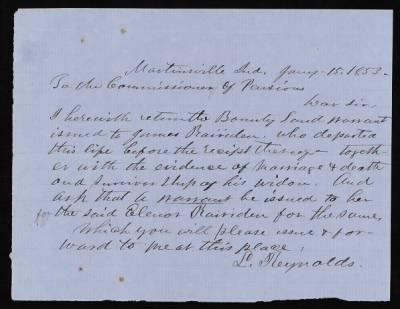 Martinsville Ind. Jany 15. 1853.
To the Commissioner of Pensions
Dear Sir,
I herewith return the Bounty Land warrant
issued to James Rairiden, who departed
this life before the recipt thereof - togeth-
er with the evidence of marriage & death
and survivorship of his widow. And
ask that a warrant be issued to her
for the said Elenor Rairiden for the same,
which you will please issue & for-
ward to me at this place,
L. Reynolds.